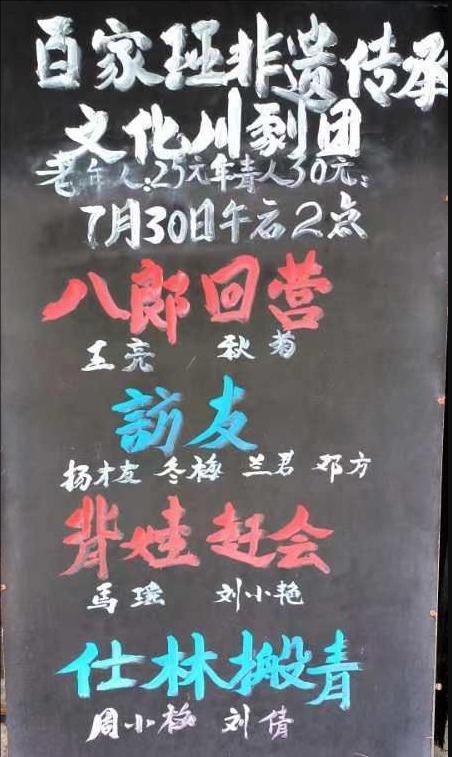 百家班非遗传承
文化川劇团
老年人:25元年青人30元:
7月30日午后2点
八郎回营
王亮 秋菊
訪友
杨才友 冬梅 兰君 邓方
背娃赶会
馬瑶 刘小艳
仕林搬青
周小梅 刘倩